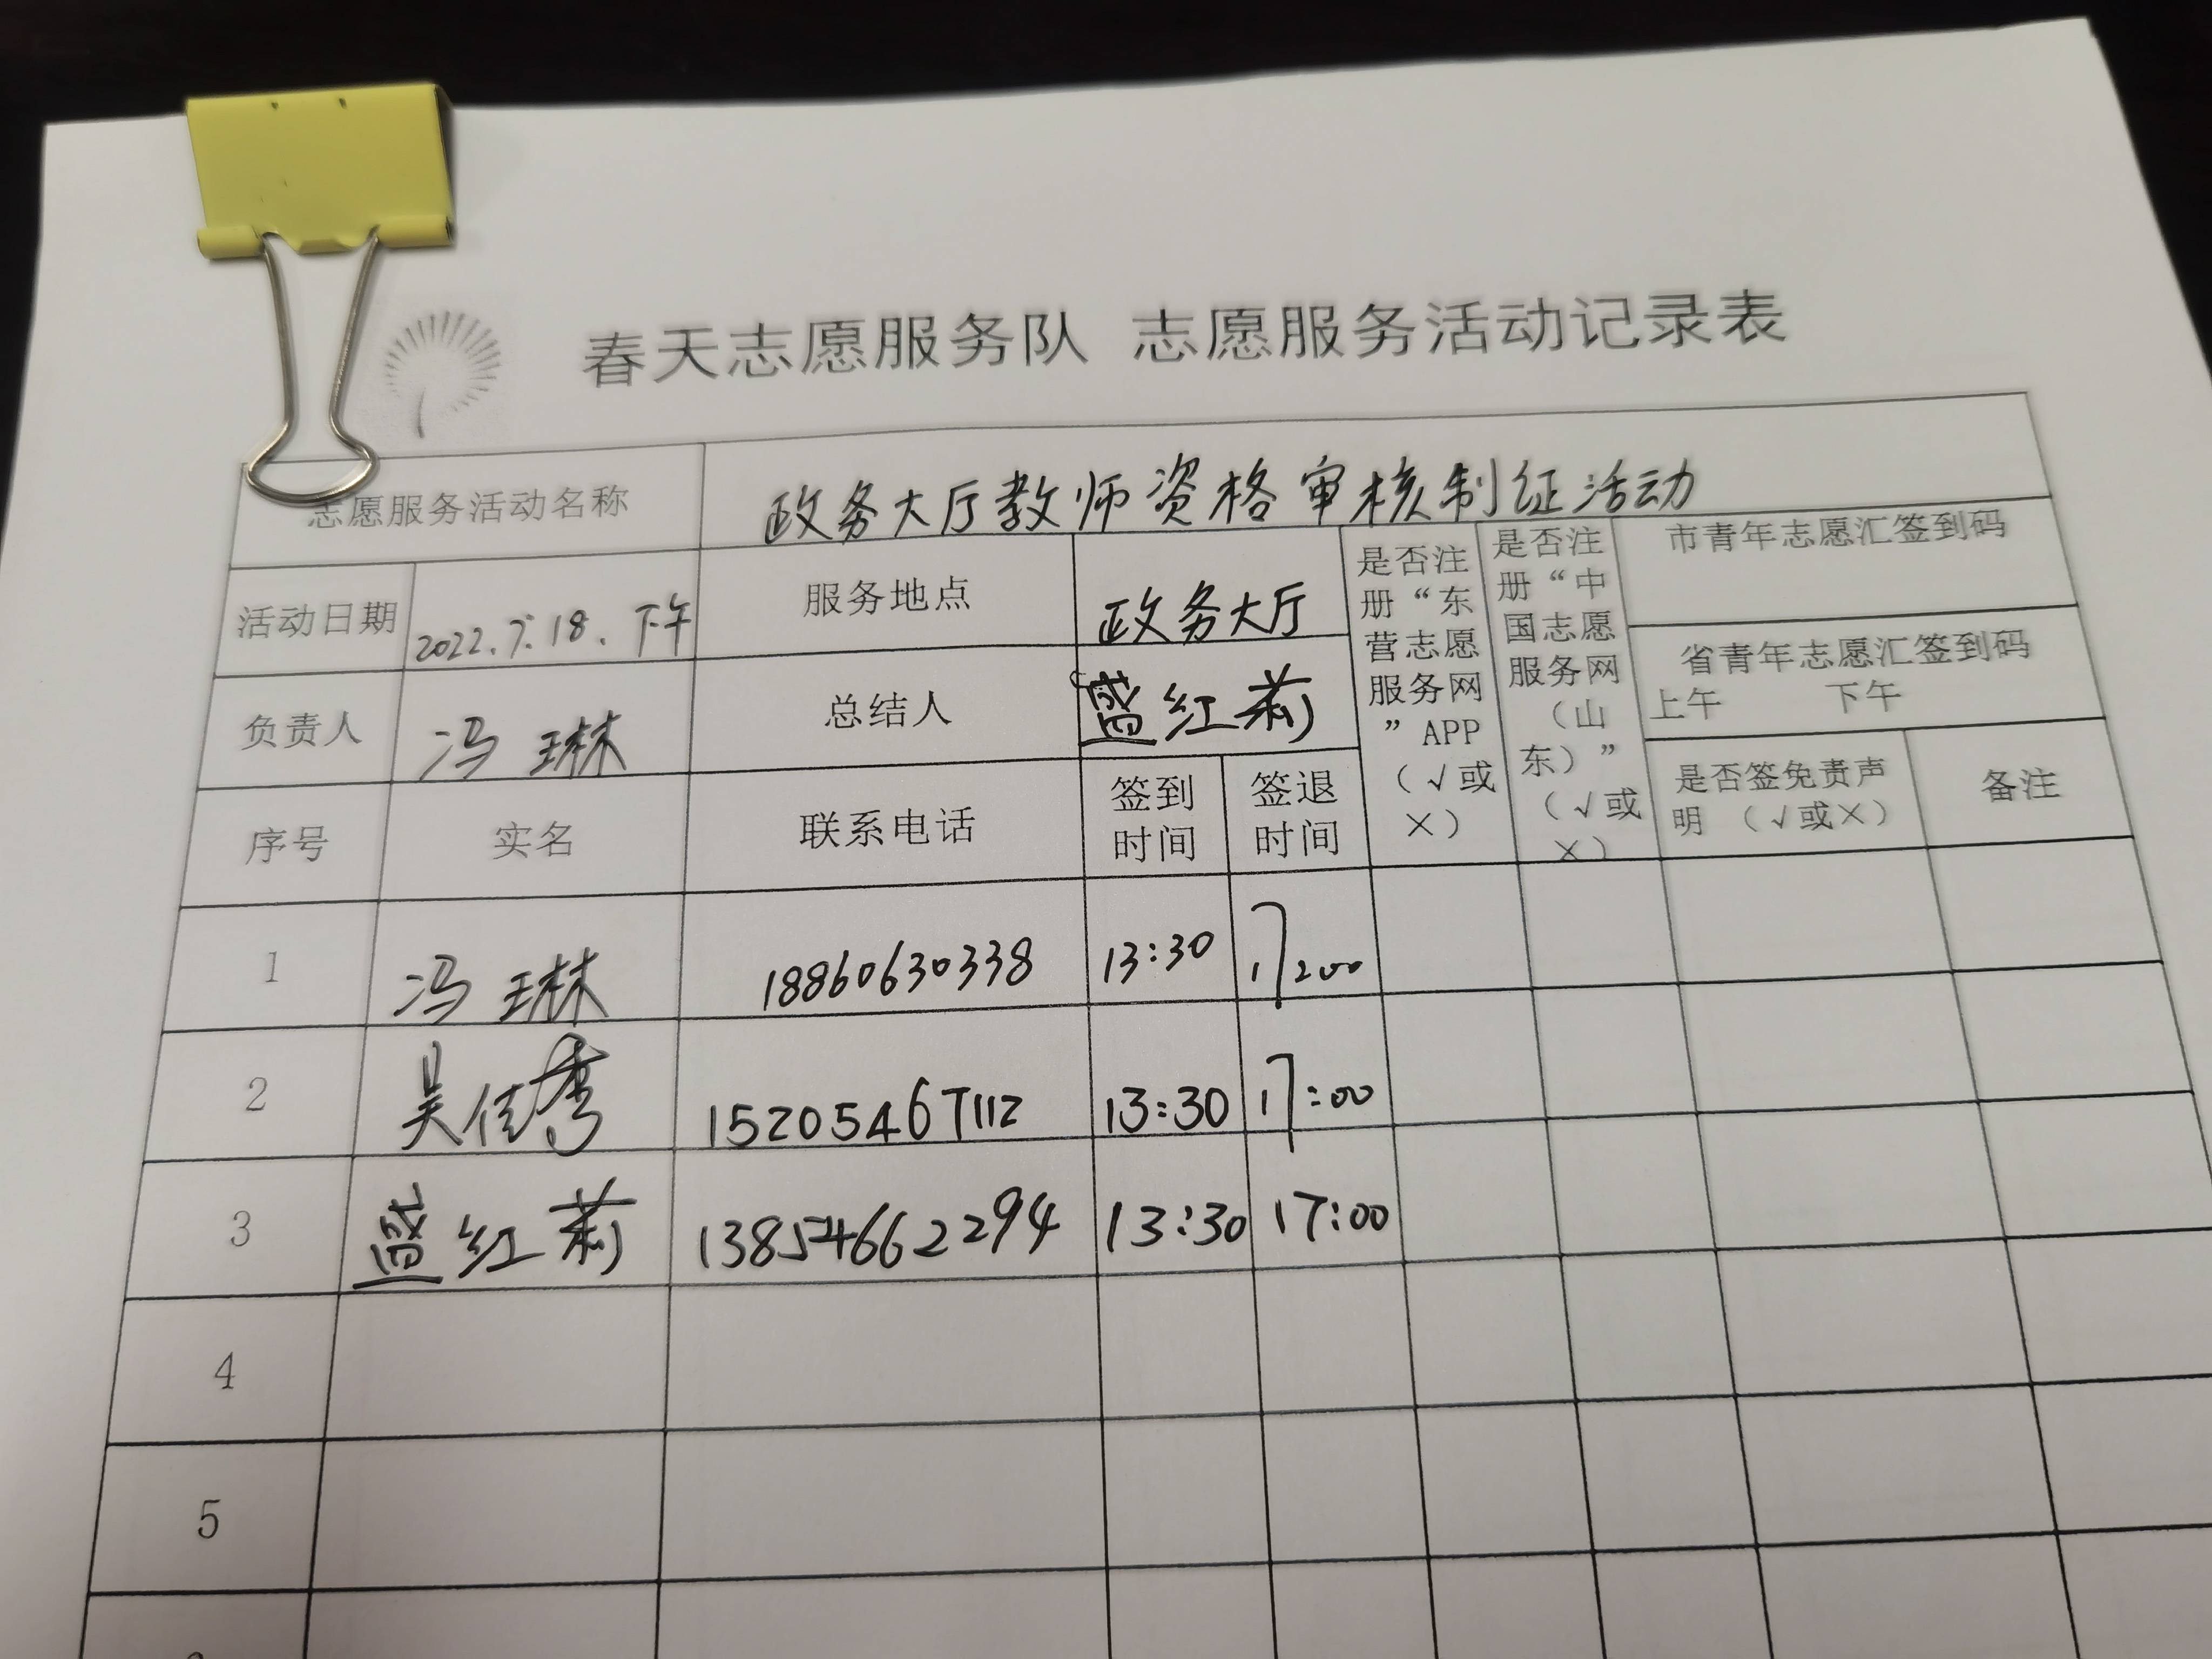 春天志愿服务队 志愿服务活动记录表
志愿服务活动名称 政务大厅教师资格审核制证活动
活动日期 2022.7.18.下午 服务地点 政务大厅
负责人 冯琳 总结人 盛红莉
是否注册“东营志愿服务网”APP（√或×）
是否注册“中国志愿服务网（山东）”（√或×）
市青年志愿汇签到码
省青年志愿汇签到码
上午 下午
序号 实名 联系电话 签到时间 签退时间 是否签免责声明（√或×） 备注
1 冯琳 18860630338 13:30 17:00
2 吴佳秀 15205467112 13:30 17:00
3 盛红莉 13854662294 13:30 17:00
4
5